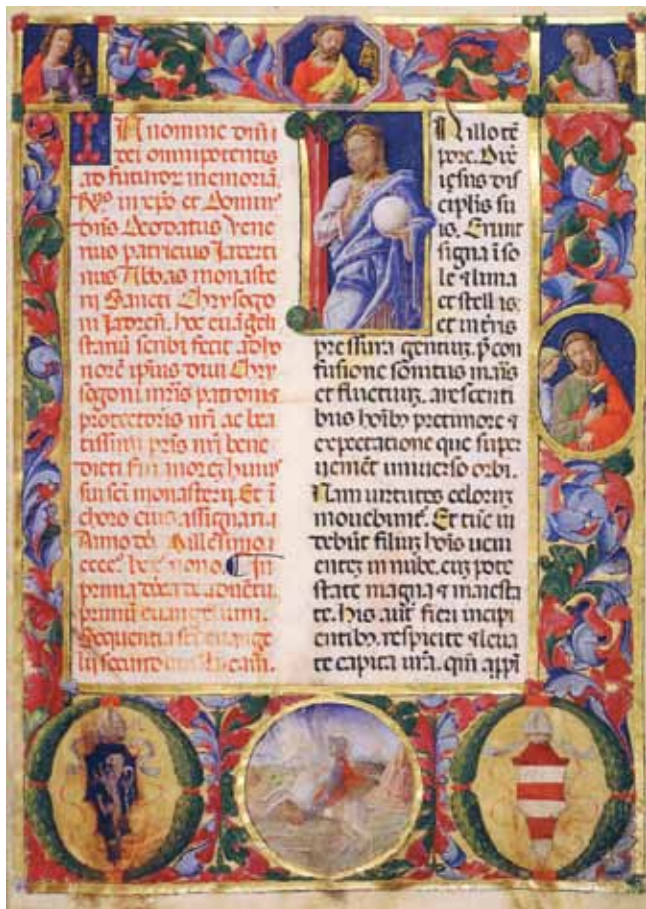 IN nomine dm̄i
dei omnipotentis
ad futuror memoriā.
in xp̄o et Domin⁹
dn̄s Deodatus Vene
rius patricius Iaderti
nus Abbas monaste
rii Sancti Chrysogo
ni Iadreñ. hoc euāgeli
stariū scribi fecit ad ho
norē ip̄ius diui Chry
sogoni mr̄is patronis
protectoris nr̄i ac bea
tissimi pr̄is nr̄i bene
dicti
sui sc̄i monasterij. Et ī
choro eius assignari
Anno dn̄i Millesimo
nono. In
prima
primū euangelium.
Sequentia sc̄i euange
lij secundum Lucam.
IN illo tē
pore. Dixi
iesus dis
cipl̄is su
is. Erunt
signa ī so
le ⁊ luna
et stellis.
et in tr̄is
pressura gentiuꝫ. p̄ con
fusione sonitus maris
et fluctuuꝫ. arescenti
bus hoīb⁹ pre timore ⁊
expectatione que super
uenient uniuerso orbi.
Nam uirtutes celoruꝫ
mouebunt̄. Et tūc ui
debūt filiuꝫ hoīs ueni
enteꝫ in nube. cuꝫ pote
state magna ⁊ maiesta
te. His aut̄ fieri incipi
entib⁹. respicite ⁊ leua
te capita ur̄a. qm̄ appī